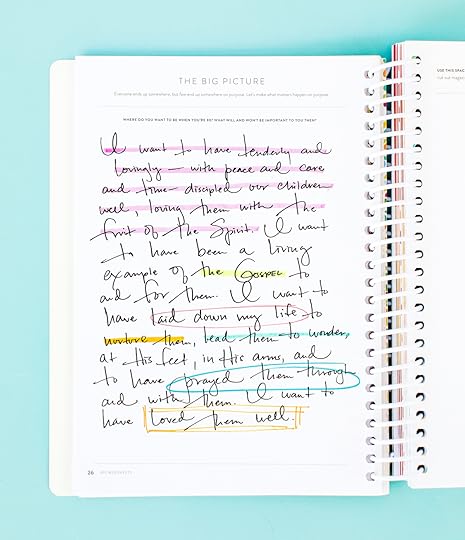 THE BIG PICTURE
Everyone ends up somewhere, but few end up somewhere on purpose. Let's make what matters happen on purpose.
WHERE DO YOU WANT TO BE WHEN YOU'RE 80? WHAT WILL AND WON'T BE IMPORTANT TO YOU THEN?
I want to have tenderly and
lovingly – with peace and care
and time – discipled our children
well, loving them with the
fruit of the Spirit. I want
to have been a living
example of the GOSPEL to
and for them. I want to
have laid down my life to
nurture them, lead them to wonder,
at His feet, in His arms, and
to have prayed them through
and with them. I want to
have loved them well.
26 POWERSHEETS
USE THIS SPAC